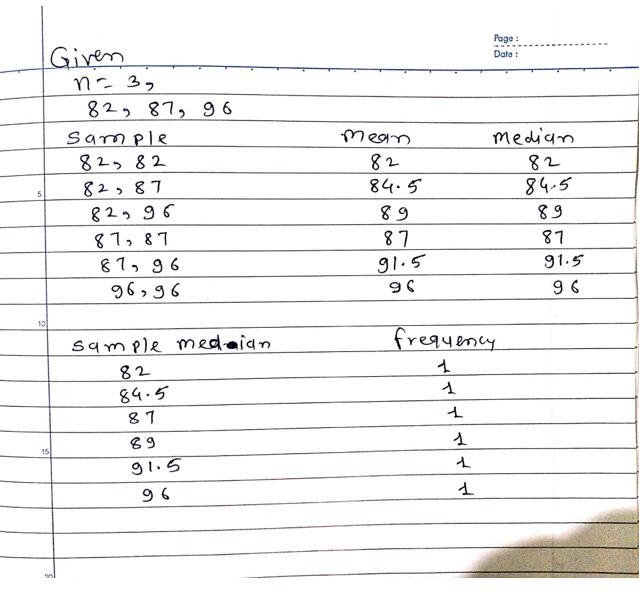 Page :
Date :
Given
n = 3,
82, 87, 96
Sample Mean Median
82, 82 82 82
82, 87 84.5 84.5
82, 96 89 89
87, 87 87 87
87, 96 91.5 91.5
96, 96 96 96
Sample median frequency
82 1
84.5 1
87 1
89 1
91.5 1
96 1
5
10
15
20